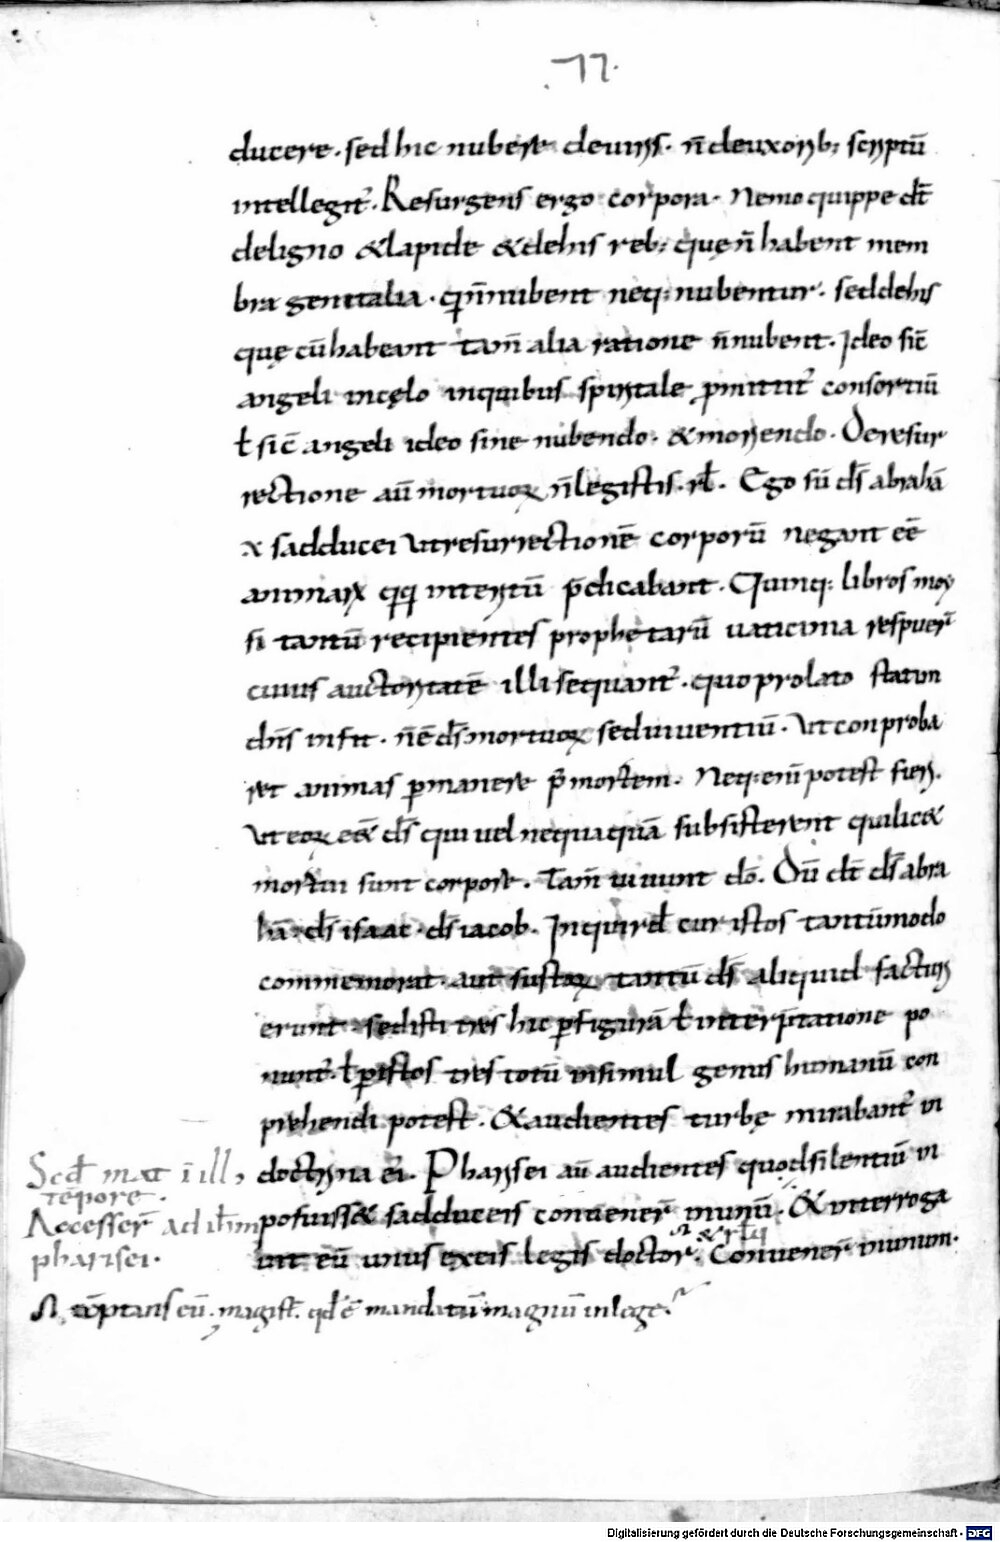 77.
ducere . sed hic nubere deuiris . n̄ deuxorib; scriptū
intellegit᷑ . Resurgens ergo corpora . Nemo quippe dt̄
deligno & lapide & dehis reb; quę n̄ habent mem
bra genitalia . qm̄ n̄nubent neq; nubentur . sed dehis
quę cū habeant tam̄ alia ratione n̄ nubent . Ideo sic̄
angeli incęlo inquibus spiritale ꝓmittit᷑ consortiū
ł sic̄ angeli ideo sine nubendo . & moriendo . De resur
rectione aū mortuoꝝ n̄ legistis . rł . Ego sū ds̄ abrahā
x sadducei ut resurrectionē corporū negant eē
animaꝝ qq; interitū p̄dicabant . Quinq; libros moy
si tantū recipientes prophetarū uaticina respuer̄
cuius auctoritatē illi sequant᷑ . quo prolato statim
dn̄s infit . n̄ ē ds̄ mortuoꝝ sed uiuentiū . Ut conproba
ret animas ꝑmanere p̄ mortem . Neq; enī potest fieri .
Ut eoꝝ eēt ds̄ qui uel nequaquā subsisterent qui lic&
mortui sunt corpore . Tam̄ uiuunt do̅ . Dū dt̄ ds̄ abra
hā . ds̄ isaac . ds̄ iacob . Inquirđ cur istos tantūmodo
commemorat . aut iustoꝝ tantū ds̄ aliquid facturi
erunt . sed isti tres hic p̄figurā ł interp̄tatione po
nunt᷑ . ł ꝑ istos tres totū insimul genus humanū con
prehendi potest . & audientes turbę mirabant᷑ in
doctrina ei᷑ . Pharisei aū audientes quod silentiū in
posuiss& sadduceis conuener̄ inunū . & interroga
uit eū unus exeis legis doctor . Conuener̄ inunum .
& rłq
Scđ mat ī ill,
tēpore .
Accesser̄ ad ihm̄
pharisei .
tēptans eū . magist̄ . qđ ē mandatū magnū inlege .